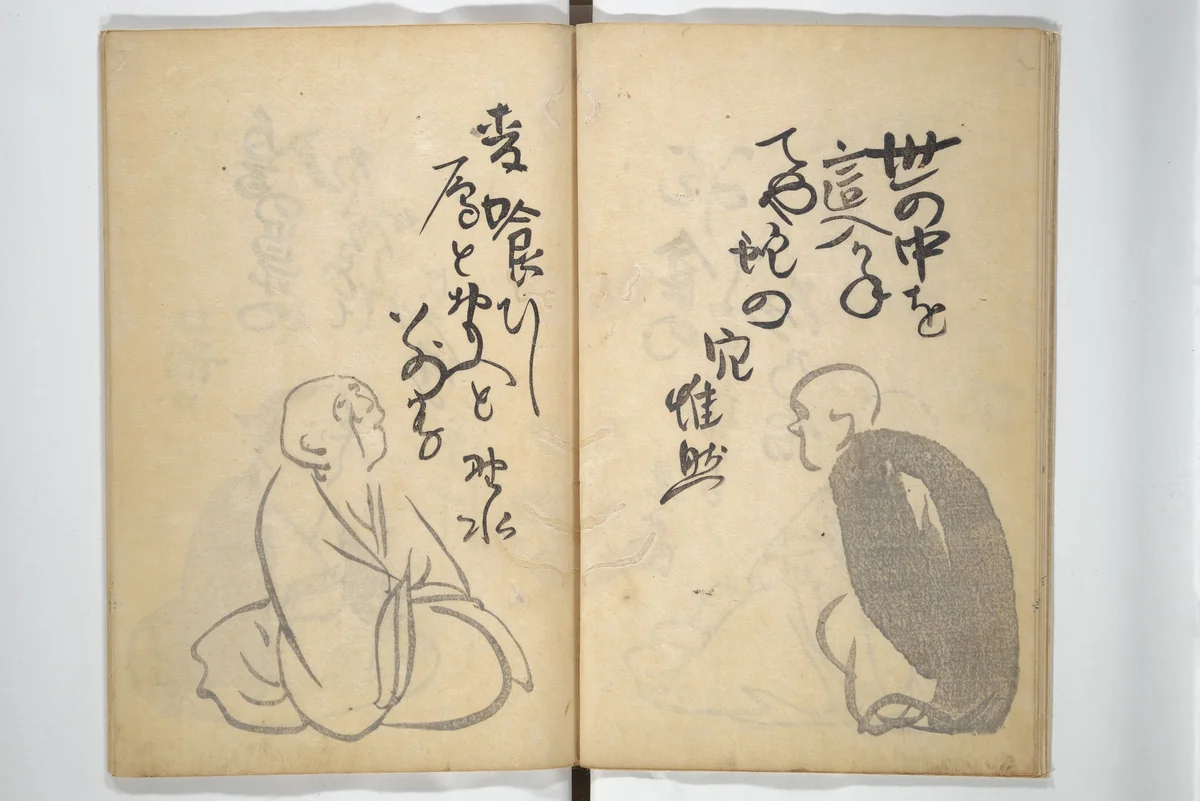 世の中を
這入かね
てや蛇の
穴
惟然
麦喰ひし
鴈と思へと
別哉
野水